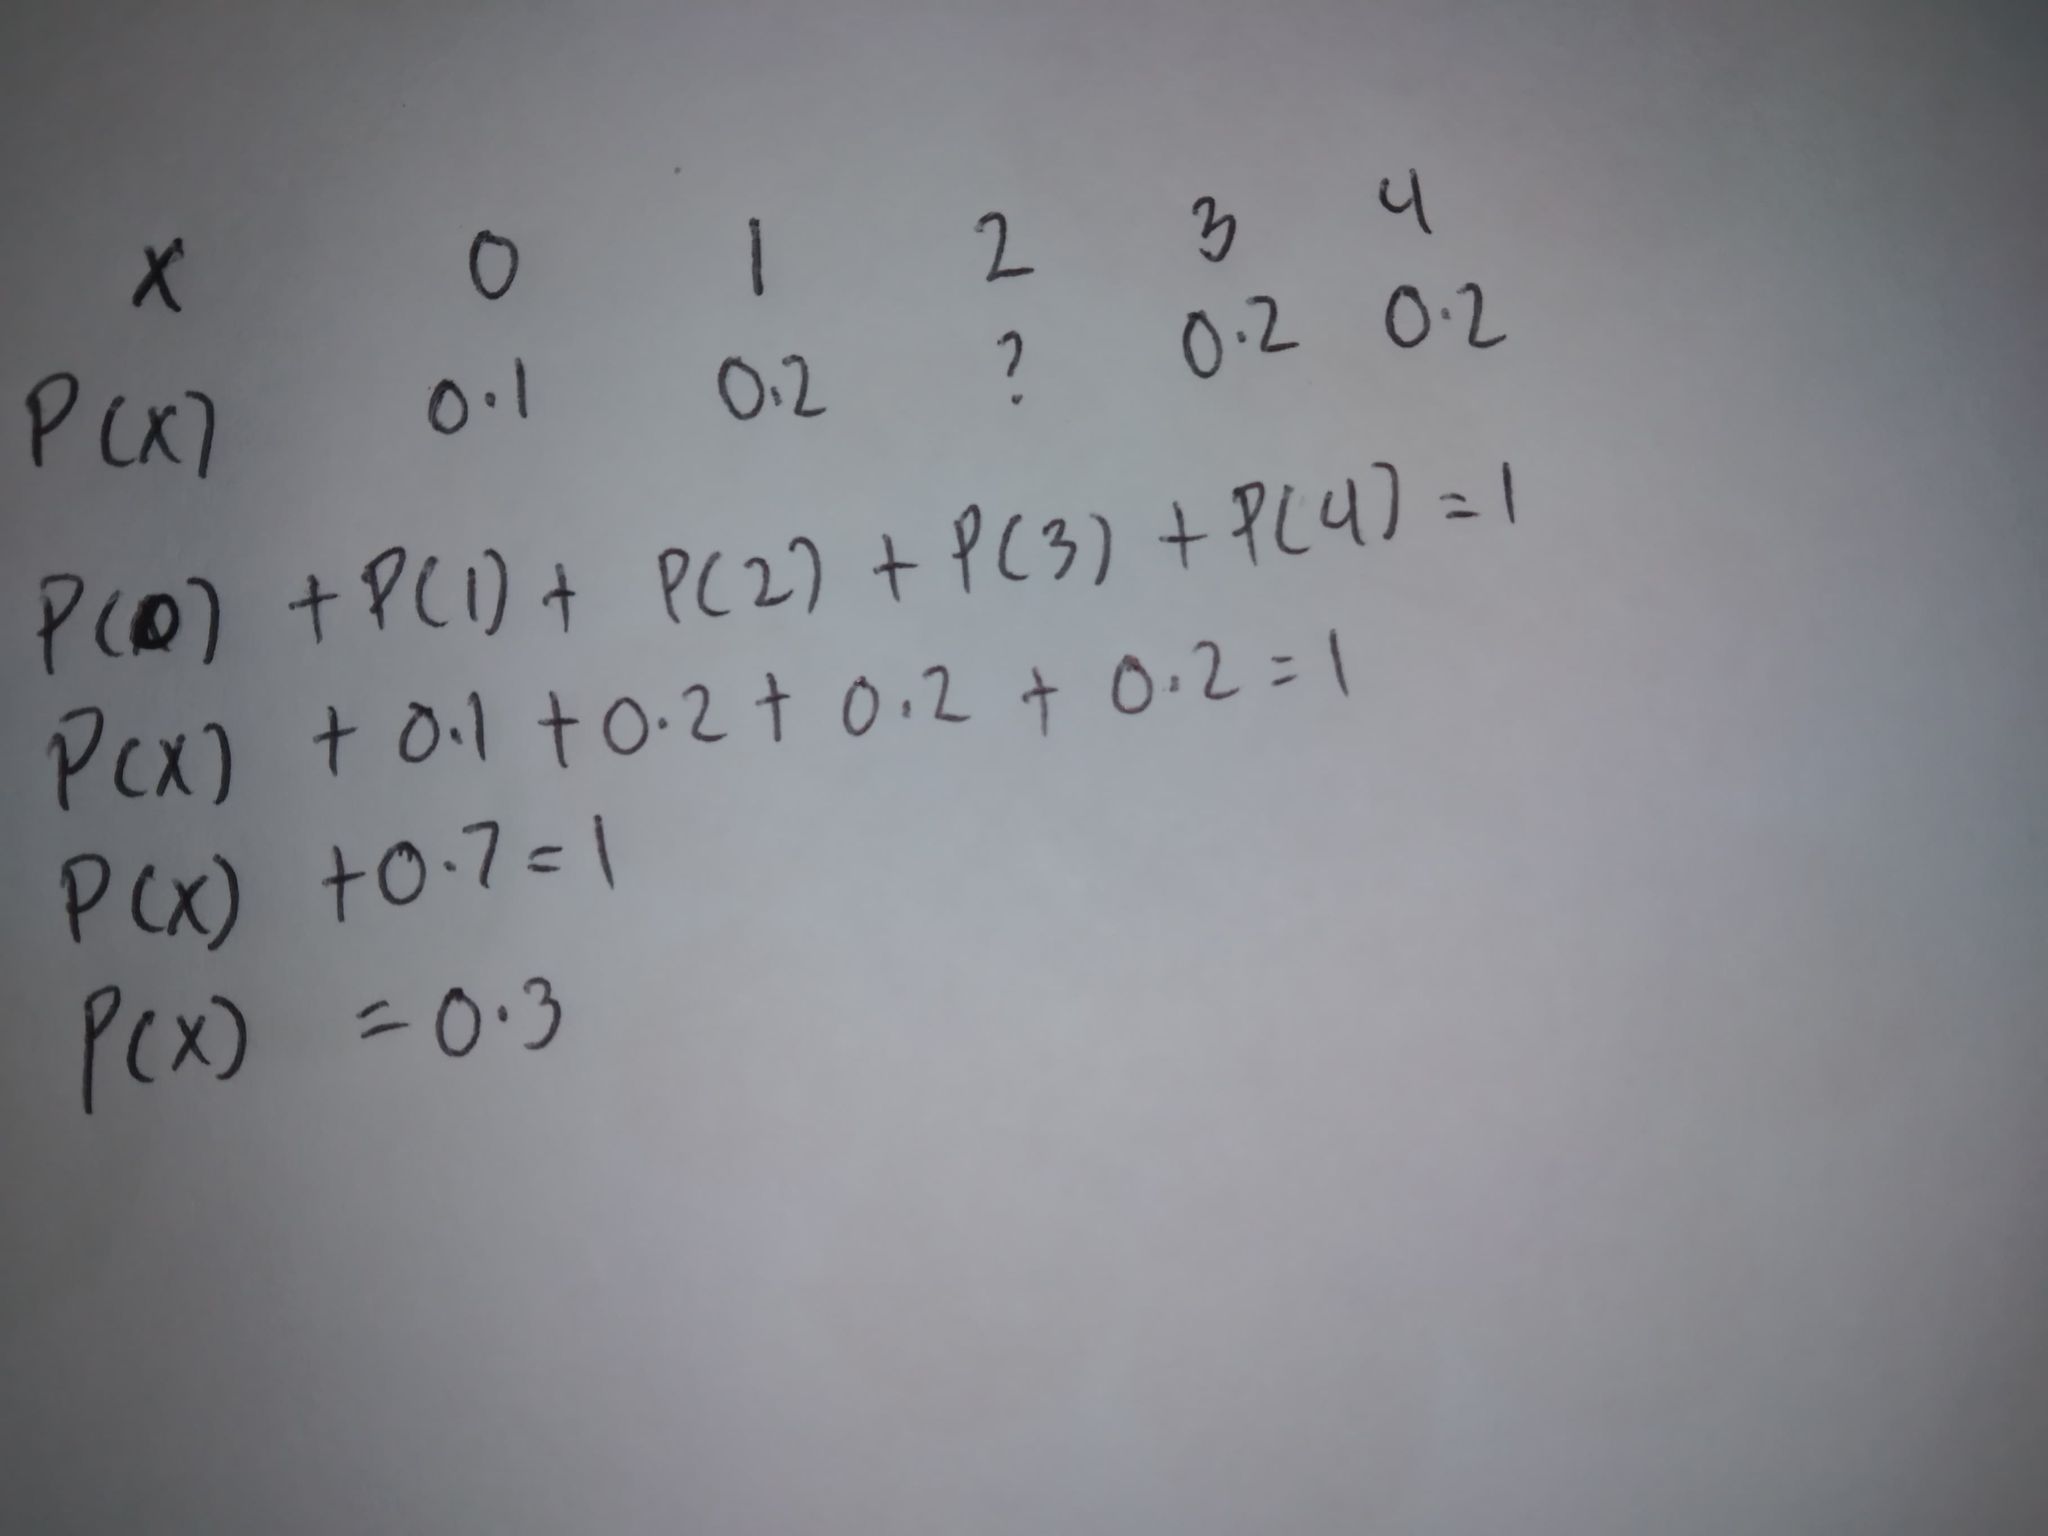 x 0 1 2 3 4
P(x) 0.1 0.2 ? 0.2 0.2
P(0) + P(1) + P(2) + P(3) + P(4) = 1
P(x) + 0.1 + 0.2 + 0.2 + 0.2 = 1
P(x) + 0.7 = 1
P(x) = 0.3